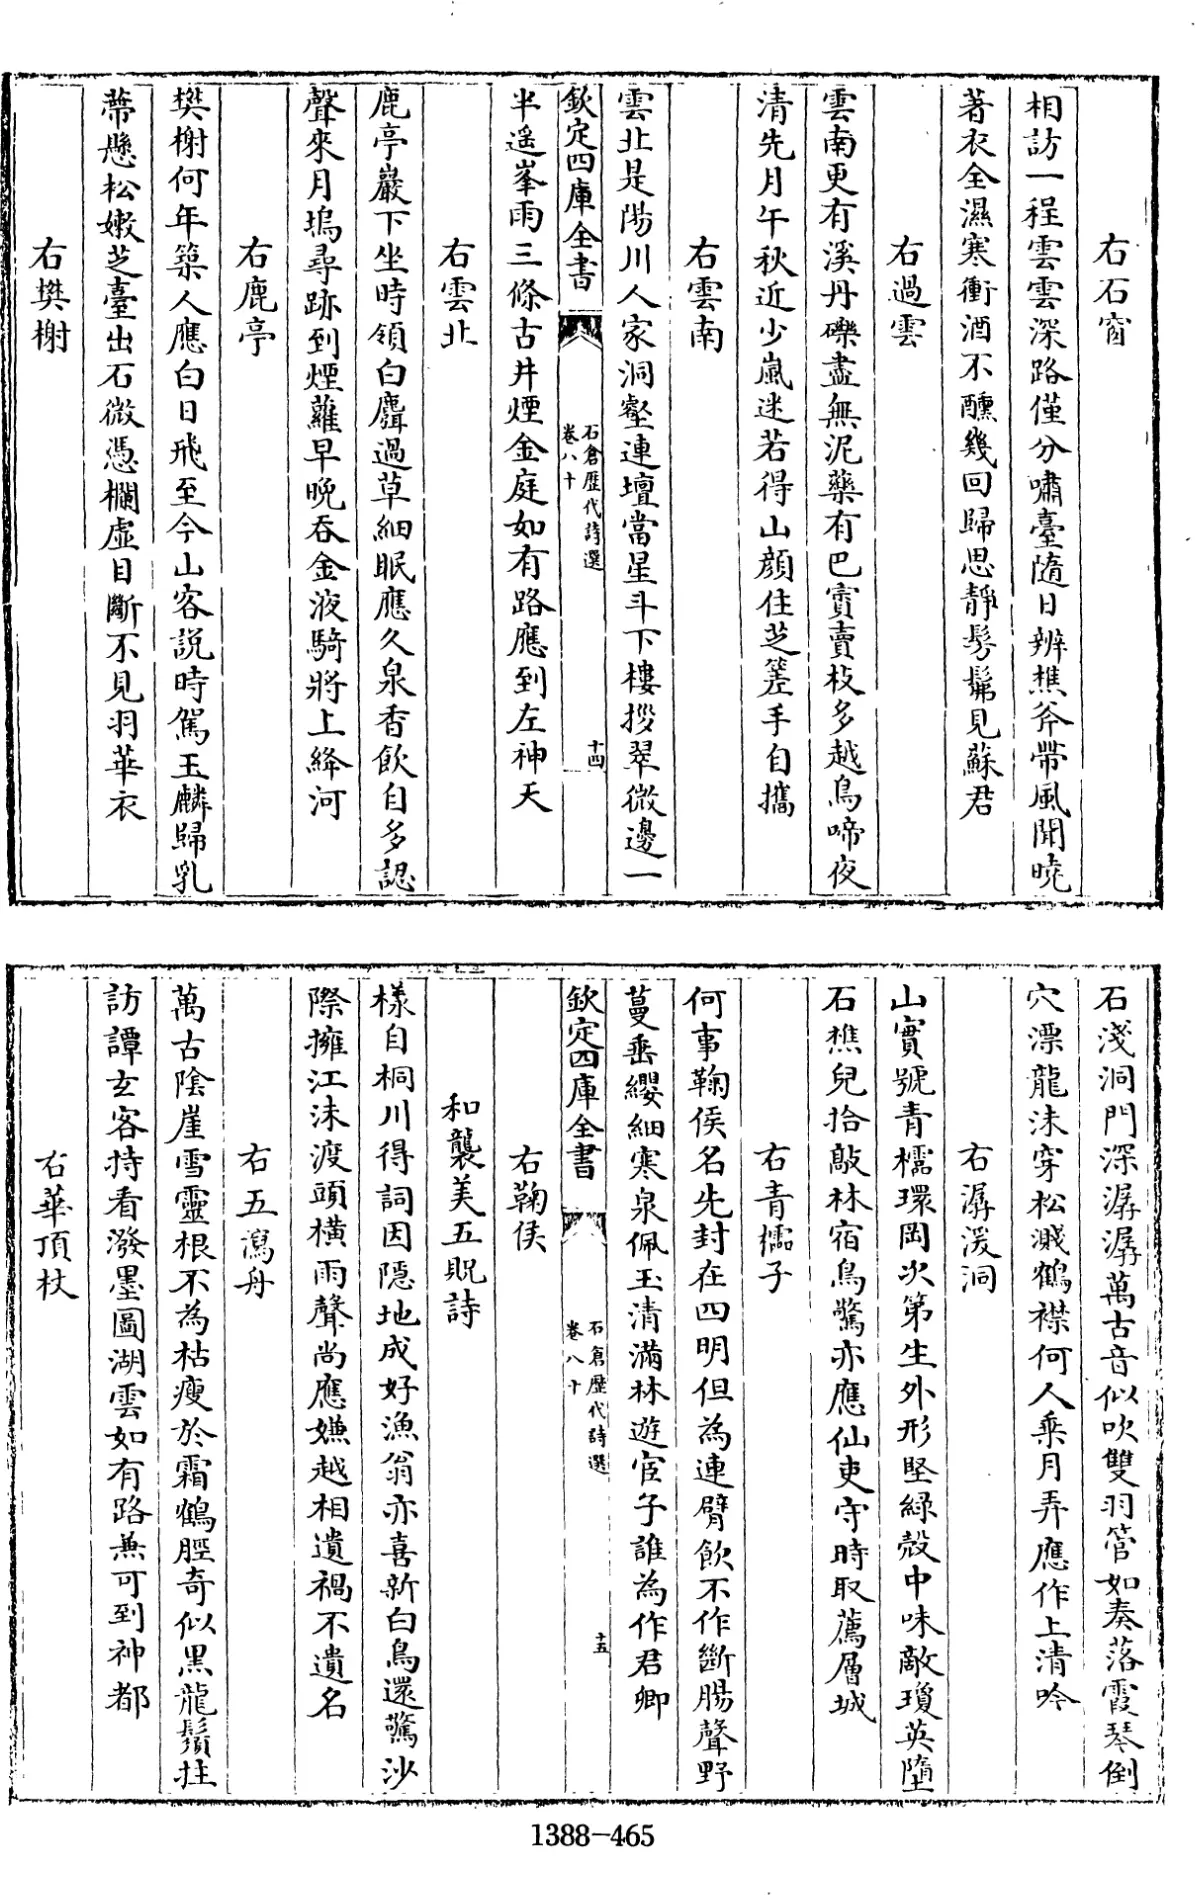 右石窗
相訪一程雲雲深路僅分嘯臺隨日辨樵斧帶風聞曉
著衣全濕寒衝酒不醺幾回歸思靜髣髴見蘇君
右過雲
雲南更有溪丹礫盡無泥藥有巴賨賣枝多越鳥啼夜
清先月午秋近少嵐迷若得山顔住芝荖手自攜
右雲南
雲北是陽川人家洞壑連壇當星斗下樓拶翠微邊一
欽定四庫全書
石倉歷代詩選
卷八十
十四
半遥峯雨三條古井煙金庭如有路應到左神天
右雲北
鹿亭巖下坐時領白麛過草細眠應久泉香飲自多認
聲來月塢尋跡到煙蘿早晚吞金液騎將上絳河
右鹿亭
樊榭何年築人應白日飛至今山客説時駕玉麟歸乳
蔕懸松嫩芝臺出石微憑欄虛目斷不見羽華衣
右樊榭
石淺洞門深潺潺萬古音似吹雙羽管如奏落霞琴倒
穴漂龍沫穿松濺鶴襟何人乘月弄應作上清吟
右潺湲洞
山實號青櫺環岡次第生外形堅緑殻中味敵瓊英墮
石樵兒拾敲林宿鳥驚亦應仙吏守時取薦層城
右青櫺子
何事鞠侯名先封在四明但為連臂飲不作斷腸聲野
蔓垂纓細寒泉佩玉清滿林遊宦子誰為作君卿
欽定四庫全書
石倉歷代詩選
卷八十
十五
右鞠侯
和襲美五貺詩
樣自桐川得詞因隱地成好漁翁亦喜新白鳥還驚沙
際擁江沫渡頭橫雨聲尚應嫌越相遺禍不遺名
右五瀉舟
萬古陰崖雪靈根不為枯瘦於霜鶴脛奇似黒龍鬚拄
訪譚玄客持看潑墨圖湖雲如有路兼可到神都
右華頂杖
1388-465